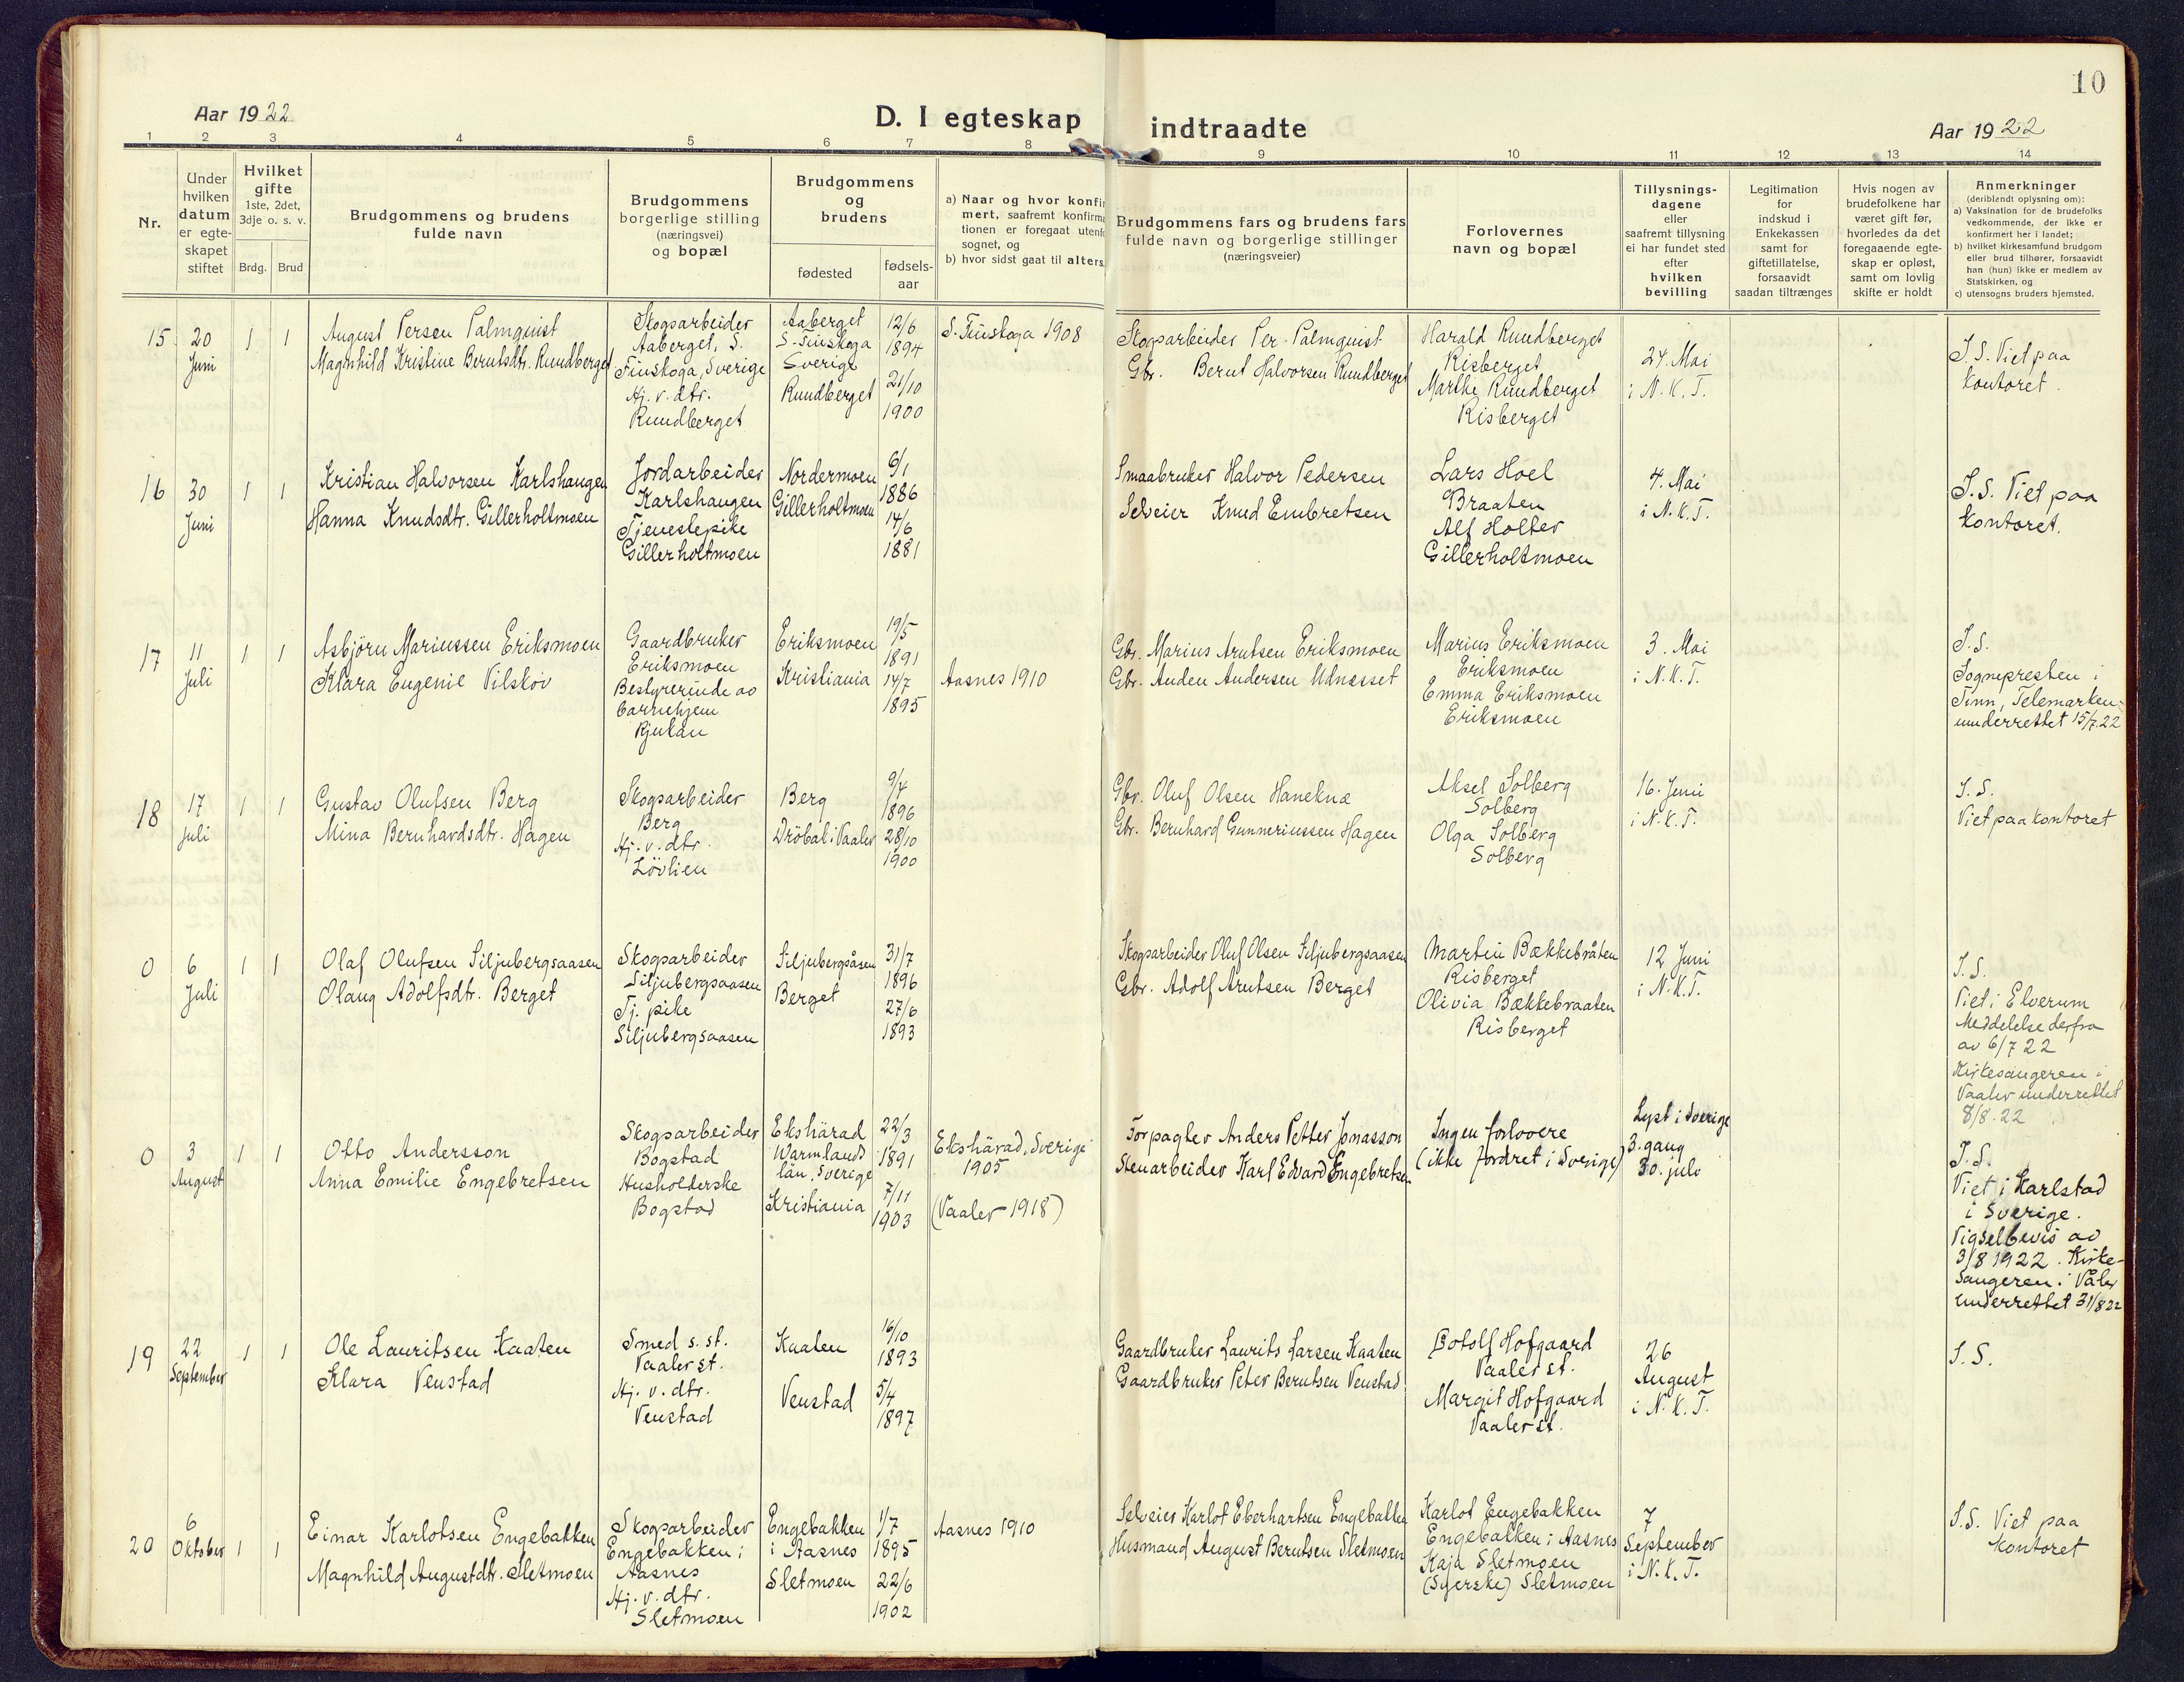 10
Aar 1922
D. I egteskap indtraadte
Aar 1922
1 2 3 4 5 6 7 8 9 10 11 12 13 14
Nr.
Under hvilken datum er egte-skapet stiftet
Hvilket gifte 1ste, 2det, 3dje o. s. v.
Brdg. Brud
Brudgommens og brudens fulde navn
Brudgommens borgerlige stilling (næringsvei) og bopæl
Brudgommens og brudens
fødested
fødsels-aar
a) Naar og hvor konfir
mert, saafremt konfirma
tionen er foregaat utenfo
sognet, og
b) hvor sidst gaat til alters.
Brudgommens fars og brudens fars
fulde navn og borgerlige stillinger
(næringsveier)
Forlovernes
navn og bopæl
Tillysnings-
dagene
eller
saafremt tillysning
ei har fundet sted
efter
hvilken
bevilling
Legitimation
for
indskud i
Enkekassen
samt for
giftetillatelse,
forsaavidt
saadan tiltrænges
Hvis nogen av
brudefolkene har
været gift før,
hvorledes da det
foregaaende egte-
skap er opløst,
samt om lovlig
skifte er holdt
Anmerkninger
(deriblandt oplysning om):
a) Vaksination for de brudefolks
vedkommende, der ikke er
konfirmert her i landet;
b) hvilket kirkesamfund brudgom
eller brud tilhører, forsaavidt
han (hun) ikke er medlem av
Statskirken, og
c) utensogns bruders hjemsted.
15 20 Juni 1 1
August Persen Palmquist
Magnhild Kristine Berntsdtr. Rundberget
Skogsarbeider
Aaberget, S.
Finskoga, Sverige
Hj. v. dtr.
Rundberget
Aaberget
S-Finskoga
Sverige
Rundberget
12/6
1894
21/10
1900
S. Finskoga 1908
Skogsarbeider Per Palmquist
Gbr. Bernt Halvorsen Rundberget
Harald Rundberget
Risberget
Marthe Rundberget
Risberget
24. Mai
i N.K.T.
I.S. Viet paa
kontoret.
16 30 Juni 1 1
Kristian Halvorsen Karlshaugen
Hanna Knudsdtr. Gillerholtmoen
Jordarbeider
Karlshaugen
Tjenestepike
Gillerholtmoen
Nordermoen
Gillerholtmoen
6/1
1886
14/6
1881
Smaabruker Halvor Pedersen
Selveier Knud Embretsen
Lars Hoel
Braaten
Alf Holter
Gillerholtmoen
4. Mai
i N.K.T.
I.S. Viet paa
kontoret.
17 11 Juli 1 1
Asbjörn Mariussen Eriksmoen
Klara Eugenie Vilsköv
Gaardbruker
Eriksmoen
Bestyrerinde av
barnehjem
Rjukan
Eriksmoen
Kristiania
19/5
1891
14/7
1895
Aasnes 1910
Gbr. Marius Arntsen Eriksmoen
Gbr. Anden Andersen Udnesset
Marius Eriksmoen
Eriksmoen
Emma Eriksmoen
Eriksmoen
3. Mai
i N.K.T.
I.S.
Sognepresten i
Tinn, Telemarken
underrettet 15/7.22
18 17 Juli 1 1
Gustav Olufsen Berg
Mina Bernhardsdtr. Hagen
Skogsarbeider
Berg
Hj. v. dtr.
Lövlien
Berg
Dröbak i Vaaler
9/4
1896
28/10
1900
Gbr. Oluf Olsen Haneknæ
Gbr. Bernhard Gunneriussen Hagen
Aksel Solberg
Solberg
Olga Solberg
Solberg
16. Juni
i N.K.T.
I.S.
Viet paa kontoret
0 6 Juli 1 1
Olaf Olufsen Siljubergsaasen
Olaug Adolfsdtr. Berget
Skogsarbeider
Siljubergsaasen
Tj. pike
Siljubergsaasen
Siljubergsåsen
Berget
31/7
1896
27/6
1893
Skogsarbeider Oluf Olsen Siljubergsaasen
Gbr. Adolf Arntsen Berget
Martin Bækkebråten
Risberget
Olivia Bækkebraaten
Risberget
12 Juni
i N.K.T.
I.S.
Viet i Elverum
Meddelelse derfra
av 6/7 22
Kirkesangeren i
Vaaler underrettet
8/8.22
0 3 August 1 1
Otto Andersson
Anna Emilie Engebretsen
Skogsarbeider
Bogstad
Husholderske
Bogstad
Ekshärad
Warmlands
län, Sverige
Kristiania
22/3
1891
7/11
1903
Ekshärad, Sverige
1905
(Vaaler 1918)
Forpagter Anders Petter Jonasson
Stenarbeider Karl Edvard Engebretsen
Ingen forlovere
(ikke fordret i Sverige)
Lyst i Sverige
3. gang
30. juli
I.S.
Viet i Karlstad
i Sverige.
Vigselbevis av
3/8 1922. Kirke-
sangeren i Våler
underrettet 31/8 22
19 22 September 1 1
Ole Lauritsen Kaaten
Klara Venstad
Smed s. st.
Vaaler st.
Hj. v. dtr.
Venstad
Kaaten
Venstad
16/10
1893
5/4
1897
Gaardbruker Laurits Larsen Kaaten
Gaardbruker Peter Berntsen Venstad
Botolf Hofgaard
Vaaler st.
Margit Hofgaard
Vaaler st.
26
August
i N.K.T.
I.S.
20 6 Oktober 1 1
Einar Karlotsen Engebakken
Magnhild Augustdtr. Sletmoen
Skogsarbeider
Engebakken i
Aasnes
Hj. v. dtr.
Sletmoen
Engebakken
i Aasnes
Sletmoen
1/7
1895
22/6
1902
Aasnes 1910
Selveier Karlot Eberhartsen Engebakken
Husmand August Berntsen Sletmoen
Karlot Engebakken
Engebakken i Aasnes
Kaja Sletmoen
(Syerske) Sletmoen
7
September
i N.K.T.
I.S. Viet paa
kontoret